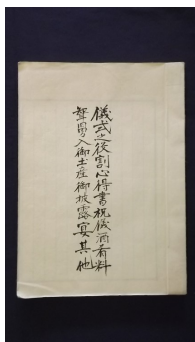 儀式之役割心得書祝儀酒肴料
聟舅入御土産御披露宴其他